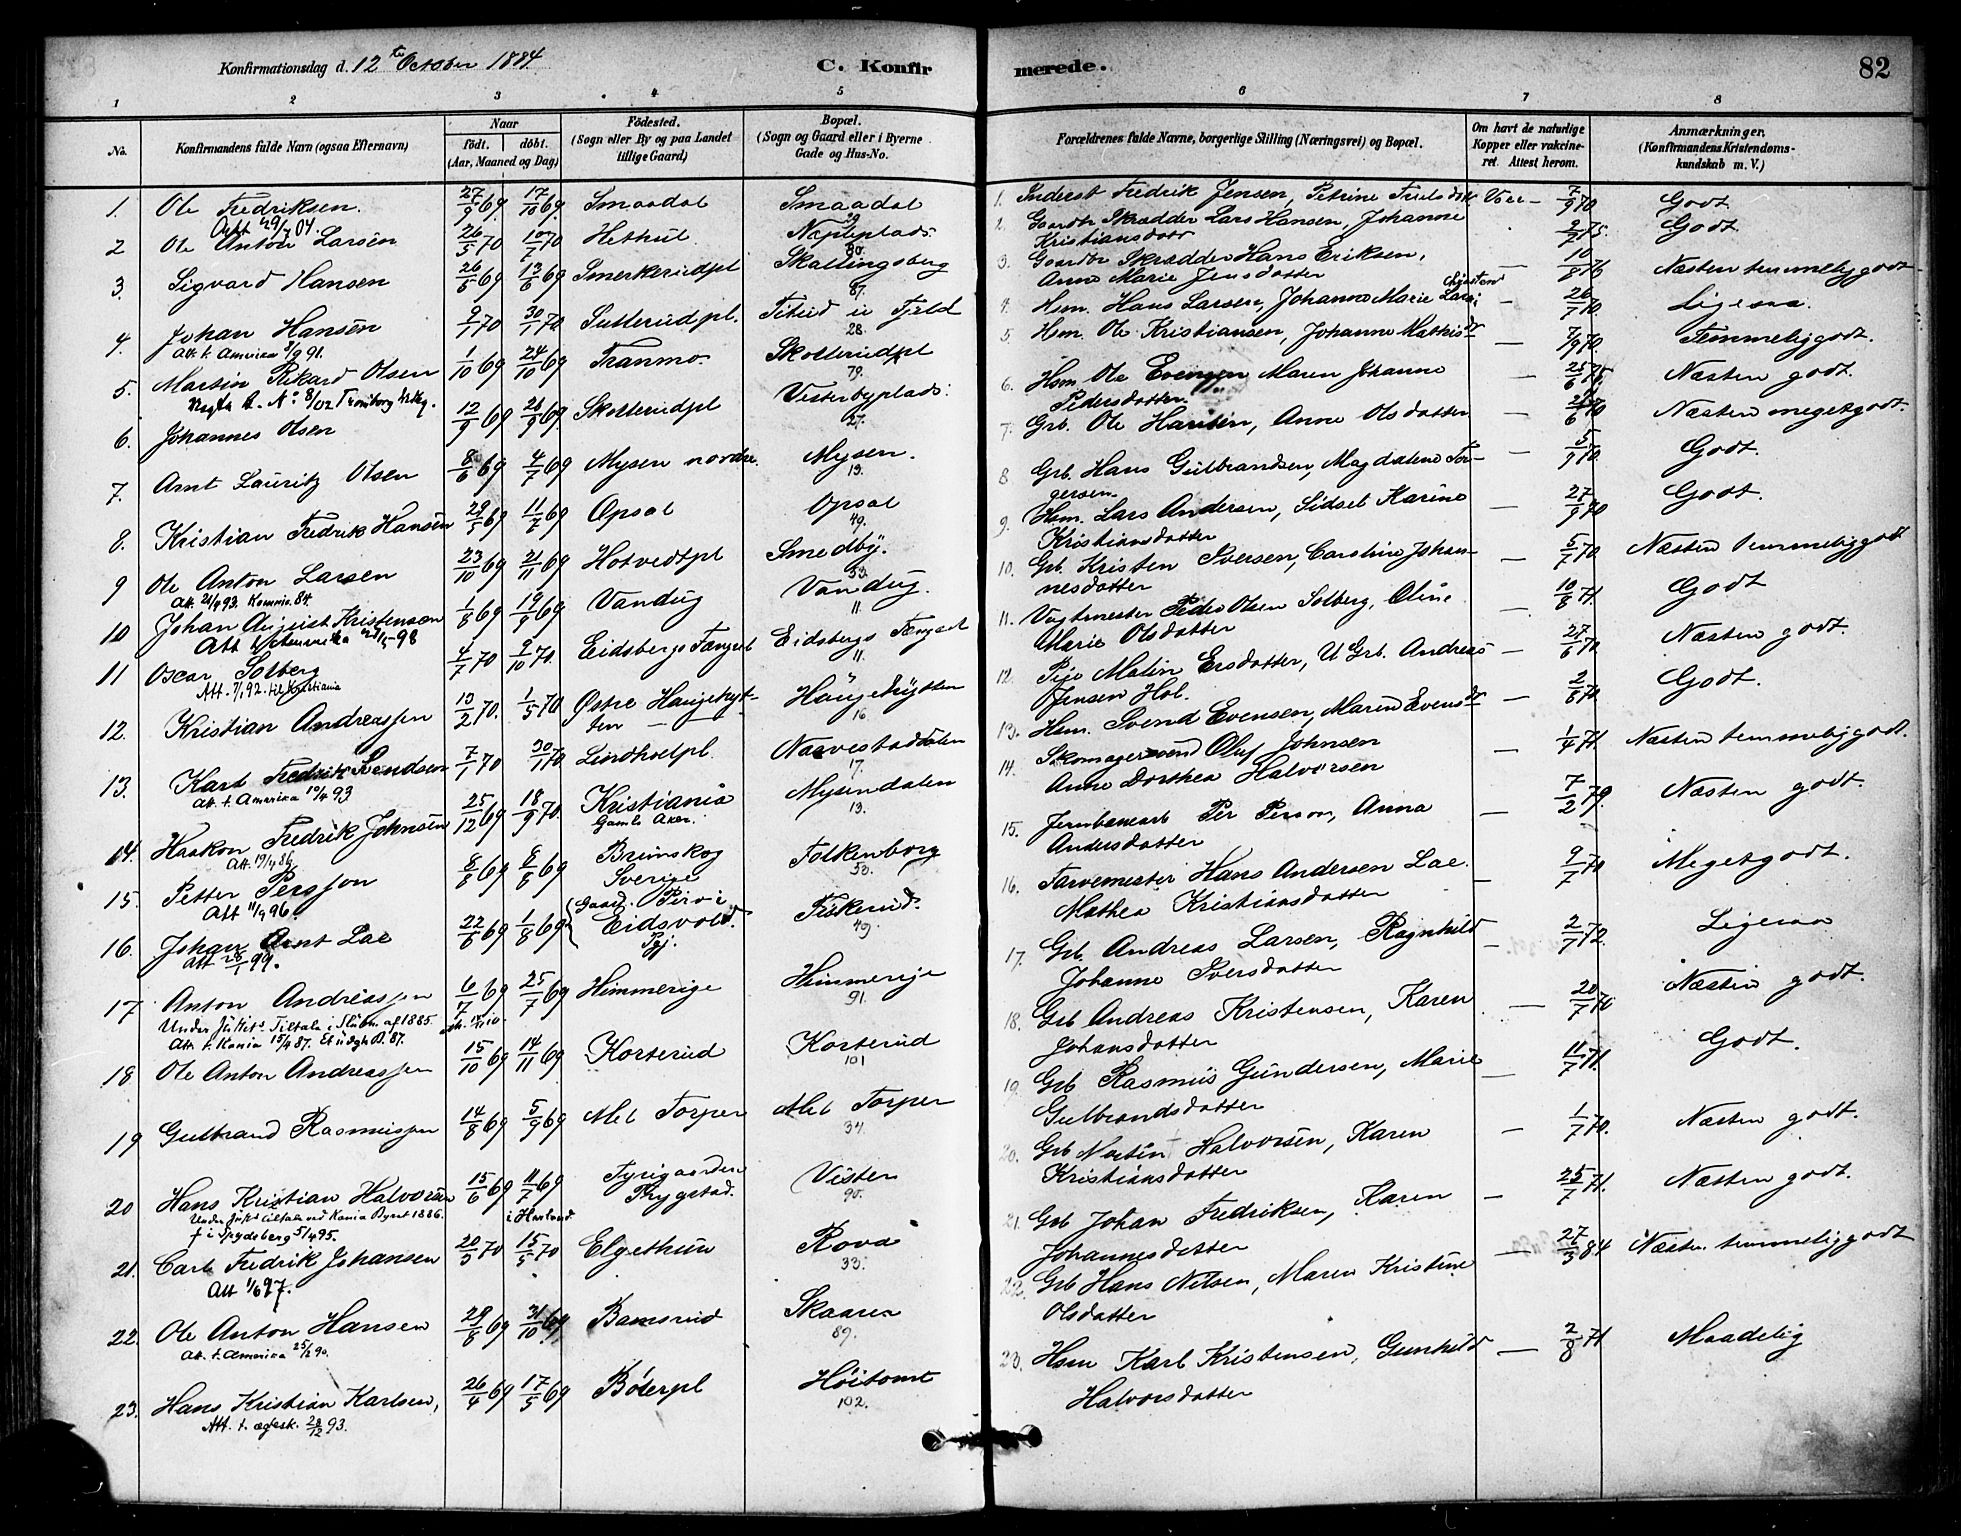 Konfirmationsdag d. 12te October 1884.
C. Konfirmerede.
82
1 2 3 4 5 6 7 8
No.
Konfirmandens fulde Navn (ogsaa Efternavn)
Naar
født. døbt.
(Aar, Maaned og Dag)
Fødested.
(Sogn eller By og paa Landet
tillige Gaard)
Bopæl.
(Sogn og Gaard eller i Byerne
Gade og Hus-No.
Forældrenes fulde Navne, borgerlige Stilling (Næringsvei) og Bopæl.
Om havt de naturlige
Kopper eller vakcine-
ret. Attest herom.
Anmærkninger.
(Konfirmandens Kristendoms-
kundskab m. V.)
1. Ole Fredriksen. 27/9 69. 17/10 69. Smaadal Smaadal 1. Inderst Fredrik Jensen, Petrine 7/9 70 Godt
Att 29/4 04.
2 Ole Anton Larsen 26/5 70 10/7 70 Hethul 2. Gaardbr Skrædder Lars Hansen, Johanne Kristiansdatr 2/7 75. Godt
3. Sigvard Hansen 26/5 69 13/6 69 Smerkerudpl Skallingsberg 3. Gaardbr Skrædder Hans Eriksen, Anne Marie Jensdatter — 10/8 76 Næsten temmeliggodt
87.
4. Johan Hansen 2/1 70 30/1 70 Sutterudpl. 4. Hsm. Hans Larsen, Johanne Marie — 26/7 70. Ligesaa.
Att. t. Amerika 8/9 91.
28.
5. Martin Rikard Olsen 1/10 69 24/10 69 Tranmo Skotterudpl 5 Hsm. Ole Kristiansen, Johanne Mathisdr — 7/9 70. Temmeliggodt.
79.
6. Johannes Olsen 12/9 69 26/9 69 Skotterudpl Vesterbyplads 6. Hsm. Ole Evensen Maren Johanne Pedersdatter — 25/6 75. Næsten godt.
27.
7. Arnt Lauritz Olsen 8/6 69 4/7 69 Mysen nordre. Mysen. 7. Grb. Ole Hansen, Anne Olsdatter — 29/6 70 Næsten megetgodt.
13.
8. Kristian Fredrik Hansen 29/5 69 11/7 69 Opsal Opsal 8 Grb. Hans Gulbrandsen, Magdalene Torgersen. — 5/9 70. Godt.
49.
9 Ole Anton Larsen 23/10 69 21/11 69 Hotvedtpl Smedby. 9. Hsm. Lars Andersen, Sidsel Karine Kristiansdatter — 27/9 70 Godt.
Att. 21/4 93.
53.
10 Johan August Kristensen 1/8 69 19/9 69 Vandug Vandug. 10. Grb. Kristen Iversen, Caroline Johannesdatter — 5/7 70 Næsten temmeliggodt
11.
11 Oscar Solberg 4/7 70 2/10 70. Eidsbergs Fængsel Eidsbergs Fængsel 11. Vagtmester Peder Olsen Solberg, Oline Marie Olsdatter — 10/8 71. Godt
Att. 7/1 92. til Kristiania
11.
12. Kristian Andreassen 13/2 70. 1/5 70 Østre Haugehytten Haugehytten 12. Pige Malin Ersdatter, U Grb. Andreas Jensen Hol. — 27/6 70. Næsten godt.
16.
13. Karl Fredrik Svendsen 7/1 70 30/1 70 Lindholpl. Narvestaddalen 13. Hsm. Svend Evensen, Maren Evensdr — 2/8 70. Godt.
Att. t. Amerika 10/4 93
17.
14. Haakon Fredrik Johnsen 25/12 69 18/9 70. Kristiania Mysendalen 14. Skomagersvend Oluf Johnsen Anne Dorthea Halvorsen — 1/4 71. Næsten temmeliggodt.
Att. 19/4 86 Gamle Aker.
13.
15. Petter Persson 8/8 69 8/8 69 Brunskog Sverige Folkenborg 15. Jernbanearb Per Person, Anna Andersdatter — 7/2 79. Næsten godt.
Att 11/9 96.
50.
16. Johan Arnt Lae 22/6 69 1/8 69 Eidsvold. Fiskerud. 16. Farvemester Hans Andersen Lae. Mathea Kristiansdatter — 9/7 70 Megetgodt.
Att 28/1 99.
49.
17 Anton Andreassen 6/7 69 25/7 69 Himmerige Himmerige 17. Grb. Andreas Larsen, Ragnhild Johanne Iversdatter — 2/7 72. Ligesaa
91.
18 Ole Anton Andreassen 15/10 69 14/11 69 Kosterud Kosterud 18. Grb Andreas Kristensen, Karen Johansdatter — 20/7 70 Næsten godt.
101
19 Gulbrand Rasmussen 14/8 69 5/9 69 Mel Torper Mel Torper 19. Grb Rasmus Gundersen, Marie Gulbrandsdatter — 11/7 71. Godt.
34.
20 Hans Kristian Halvorsen 15/6 69 11/7 69 Trygstad. Visten 20. Grb Martin Halvorsen, Karen Kristiansdatter — 1/7 70. Næsten godt.
† i Spydeberg 5/4 95.
90.
21. Carl Fredrik Johansen 20/3 70 15/5 70 Elgethun Rova 21. Grb Johan Fredriksen, Karen Johannesdatter — 25/7 71. Næsten godt.
Att 1/6 97.
33.
22. Ole Anton Hansen 29/8 69 31/10 69. Bamsrud Skaaren 22. Grb Hans Nilsen, Maren Kristine Olsdatter — 27/3 84 Næsten temmeliggodt
Att. t. Amerika 25/2 90.
89.
23. Hans Kristian Karlsen, 26/4 69 17/5 69 Bölerpl Höitomt 23. Hsm Karl Kristensen, Gunhild Halvorsdatter — 2/8 71 Maadelig
Att. t. ægtesk. 28/12 93.
102.